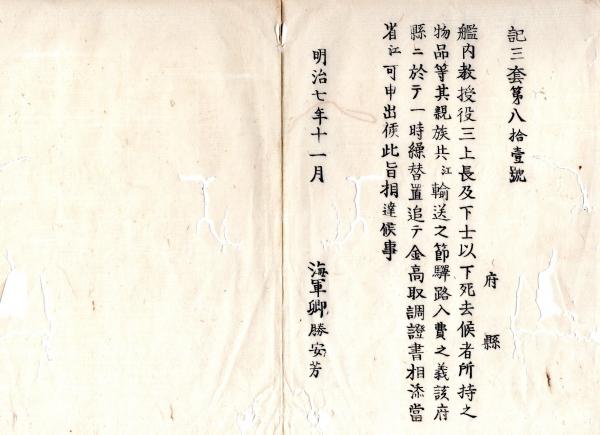 記三套第八拾壹號
府縣
艦内教授役三上長及下士以下死去候者所持之
物品等其親族共江輸送之節驛路入費之義該府
縣ニ於テ一時繰替置追テ金高取調證書相添當
省江可申出候此旨相達候事
明治七年十一月
海軍卿勝安芳